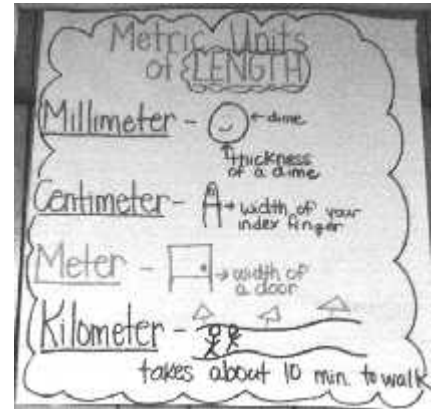 Metric Units
of {LENGTH}
Millimeter - ← dime
↑ thickness
of a dime
Centimeter - → width of your
index finger
Meter - → width of
a door
Kilometer -
takes about 10 min. to walk